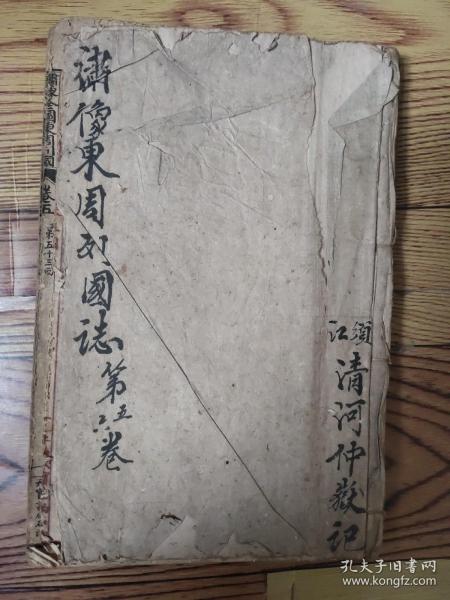 須江 清河仲嶽記
繡像東周列國誌第五六卷
卷五
第五十三回
孔夫子旧书网
www.kongfz.com